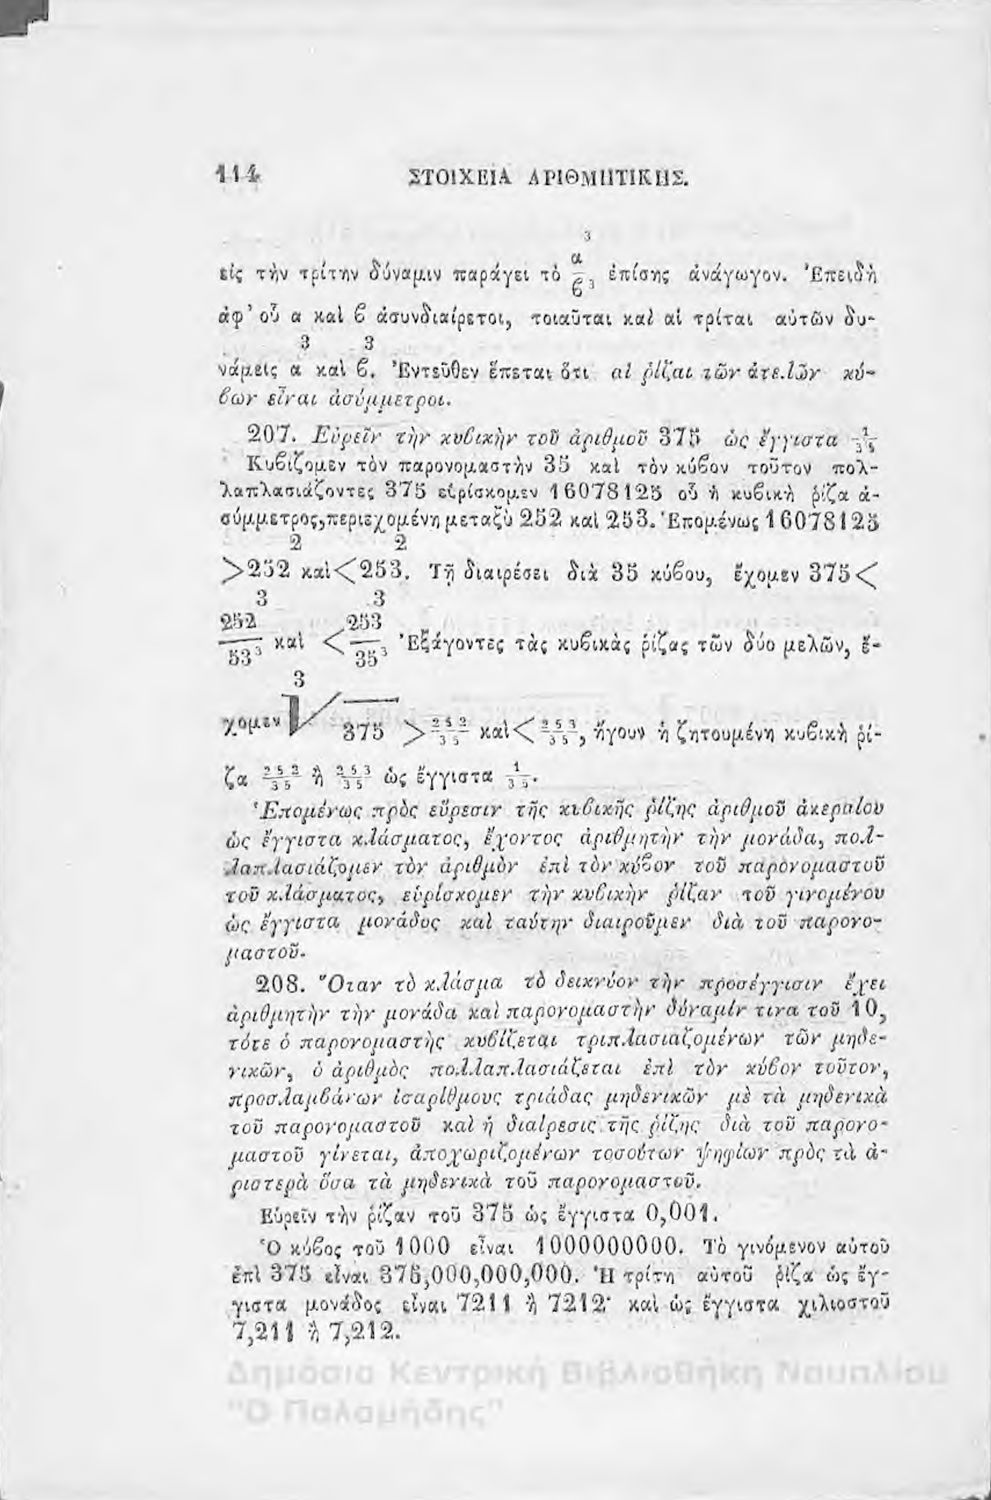 114 ΣΤΟΙΧΕΙΑ ΑΡΙΘΜΗΤΙΚΗΣ.
3
εἰς τὴν τρίτην δύναμιν παράγει τὸ α/β3 ἐπίσης ἀνάγωγον. Ἐπειδὴ
ἀφ' οὗ α καὶ β ἀσυνδιαίρετοι, τοιαῦται καὶ αἱ τρίται αὐτῶν δυ-
3 3
νάμεις α καὶ β. Ἐντεῦθεν ἕπεται ὅτι αἱ ῥίζαι τῶν ἀτελῶν κύ-
βων εἶναι ἀσύμμετροι.
207. Εὑρεῖν τὴν κυβικὴν τοῦ ἀριθμοῦ 375 ὡς ἔγγιστα 1/35
Κυβίζομεν τὸν παρονομαστὴν 35 καὶ τὸν κύβον τοῦτον πολ-
λαπλασιάζοντες 375 εὑρίσκομεν 16078125 οὗ ἡ κυβικὴ ῥίζα ἀ-
σύμμετρος, περιεχομένη μεταξὺ 252 καὶ 253. Ἐπομένως 16078125
2 2
>252 καὶ <253. Τῇ διαιρέσει διὰ 35 κύβου, ἔχομεν 375<
3 3
252/53³ καὶ < 253/35³ Ἐξάγοντες τὰς κυβικὰς ῥίζας τῶν δύο μελῶν, ἔ-
3
χομεν √375 > 252/35 καὶ < 253/35, ἤγουν ἡ ζητουμένη κυβικὴ ῥί-
ζα 252/35 ἢ 253/35 ὡς ἔγγιστα 1/35.
Ἑπομένως πρὸς εὕρεσιν τῆς κυβικῆς ῥίζης ἀριθμοῦ ἀκεραίου
ὡς ἔγγιστα κλάσματος, ἔχοντος ἀριθμητὴν τὴν μονάδα, πολ-
λαπλασιάζομεν τὸν ἀριθμὸν ἐπὶ τὸν κύβον τοῦ παρονομαστοῦ
τοῦ κλάσματος, εὑρίσκομεν τὴν κυβικὴν ῥίζαν τοῦ γινομένου
ὡς ἔγγιστα μονάδος καὶ ταύτην διαιροῦμεν διὰ τοῦ παρονο-
μαστοῦ.
208. Ὅταν τὸ κλάσμα τὸ δεικνύον τὴν προσέγγισιν ἔχει
ἀριθμητὴν τὴν μονάδα καὶ παρονομαστὴν δύναμίν τινα τοῦ 10,
τότε ὁ παρονομαστὴς κυβίζεται τριπλασιαζομένων τῶν μηδε-
νικῶν, ὁ ἀριθμὸς πολλαπλασιάζεται ἐπὶ τὸν κύβον τοῦτον,
προσλαμβάνων ἰσαρίθμους τριάδας μηδενικῶν μὲ τὰ μηδενικὰ
τοῦ παρονομαστοῦ καὶ ἡ διαίρεσις τῆς ῥίζης διὰ τοῦ παρονο-
μαστοῦ γίνεται, ἀποχωριζομένων τοσούτων ψηφίων πρὸς τὰ ἀ-
ριστερὰ ὅσα τὰ μηδενικὰ τοῦ παρονομαστοῦ.
Εὑρεῖν τὴν ῥίζαν τοῦ 375 ὡς ἔγγιστα 0,001.
Ὁ κύβος τοῦ 1000 εἶναι 1000000000. Τὸ γινόμενον αὐτοῦ
ἐπὶ 375 εἶναι 375,000,000,000. Ἡ τρίτη αὐτοῦ ῥίζα ὡς ἔγ-
γιστα μονάδος εἶναι 7211 ἢ 7212· καὶ ὡς ἔγγιστα χιλιοστοῦ
7,211 ἢ 7,212.
Δημόσια Κεντρική Βιβλιοθήκη Ναυπλίου
"Ο Παλαμήδης"